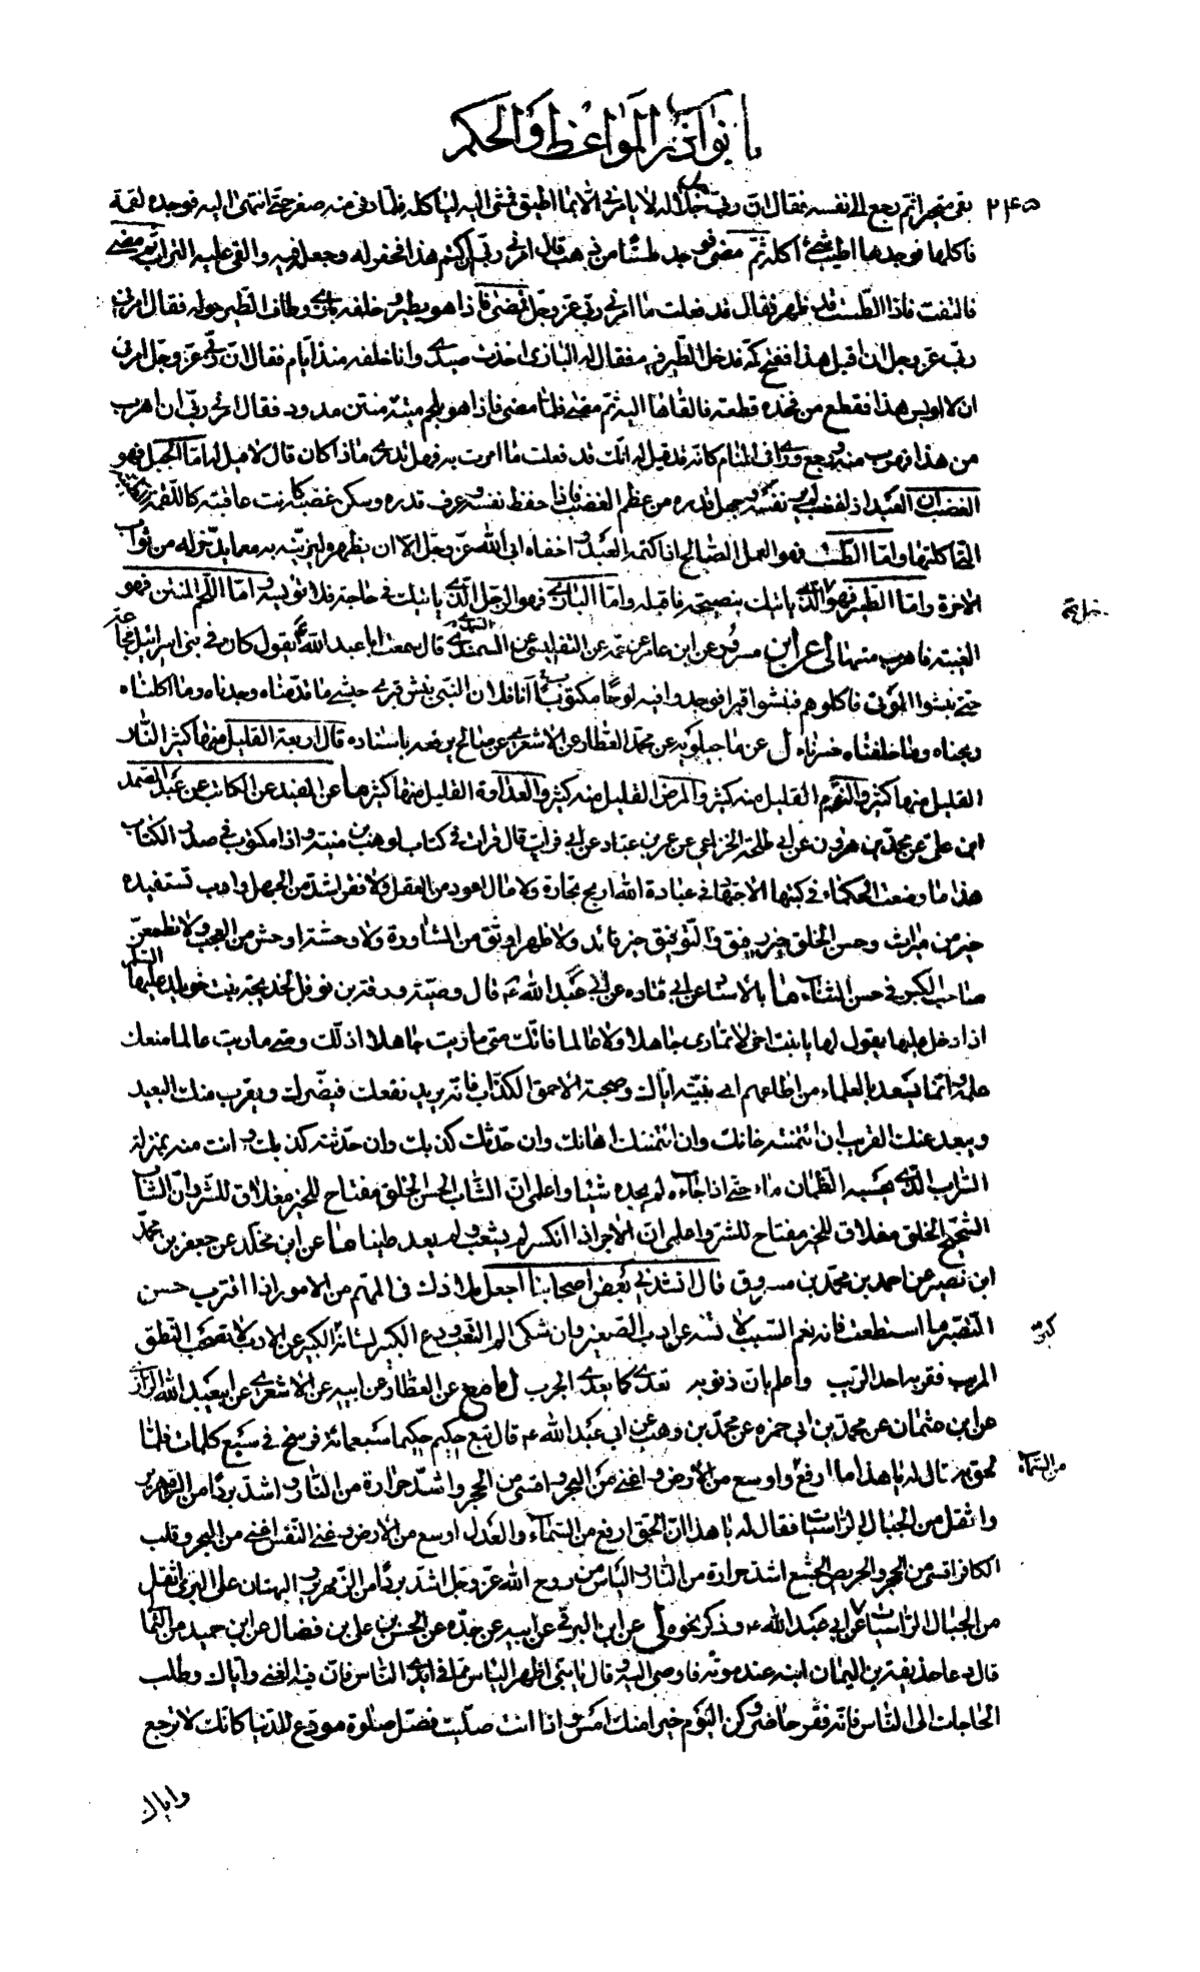 باب نوادر المواعظ والحكم
٢٤٥ بقى متحيرا ثم رجع الى نفسه فقال ان ربى جل جلاله لا يامرنى الا بما اطيق فمشى اليه لياكله فلما دنى منه صغر حتى انتهى اليه فوجده لقمة
فاكلها فوجدها اطيب شئ اكله ثم مضى فوجد طستا من ذهب قال امرنى ربى ان اكتم هذا فحفر له وجعله فيه والقى عليه التراب ثم مضى
فالتفت فاذا الطست قد ظهر فقال قد فعلت ما امرنى ربى عز وجل فمضى فاذا هو بطير وخلفه بازى وطاف الطير حوله فقال امرنى
ربى عز وجل ان اقبل هذا ففتح كمه فدخل الطير فيه فقال له البازى اخذت صيدى وانا خلفه منذ ايام فقال ان ربى عز وجل امرنى
ان لا اويس هذا فقطع من فخذه قطعة فالقاها اليه ثم مضى فلما مضى فاذا هو بلحم ميتة منتن مدود فقال امرنى ربى ان اهرب
من هذا فهرب منه ورجع وراى فى المنام كانه قد قيل له انك قد فعلت ما امرت به فهل تدرى ماذا كان قال لا قيل له اما الجبل فهو
الغضب ان العبد اذا غضب لم ير نفسه وجهل قدره من عظم الغضب فاذا حفظ نفسه وعرف قدره وسكن غضبه كانت عاقبته كاللقمة الطيبة
التى اكلتها واما الطست فهو العمل الصالح اذا كتمه العبد واخفاه ابى الله عز وجل الا ان يظهره ليزينه به مع ما يدخر له من ثواب
الاخرة واما الطير فهو الذى ياتيك بنصيحة فاقبله واما البازى فهو الرجل الذى ياتيك فى حاجة فلا تؤيسه واما اللحم المنتن فهو
الغيبة فاهرب منها لى ابن مسرور عن ابن عامر عن عمه عن التفليسى عن السمندى قال سمعت ابا عبد الله ع يقول كان فى بنى اسرائيل مجاعة
حتى نبشوا الموتى فاكلوهم فنبشوا قبرا فوجدوا فيه لوحا مكتوبا انا فلان النبى ينبش قبرى حبشى ما قدمناه وجدناه وما اكلناه
ربحناه وما خلفناه خسرناه ل عن ماجيلويه عن محمد العطار عن الاشعرى عن صالح يرفعه باسناده قال اربعة القليل منها كثير النار
القليل منها كثير والنوم القليل منه كثير والمرض القليل منه كثير والعداوة القليل منها كثير ما عن المفيد عن الكاتب عن عبد الصمد
ابن على عن محمد بن هرون عن ابى طلحة الخزاعى عن عمر بن عباد عن ابى فرات قال قرات فى كتاب لوهب بن منبه واذا مكتوب فى صدر الكتاب
هذا ما وضعت الحكماء فى كتبها الاجتهاد فى عبادة الله اربح تجارة ولا مال اعود من العقل ولا فقر اشد من الجهل وادب تستفيده
خير من ميراث وحسن الخلق خير رفيق والتوفيق خير قائد ولا ظهر اوثق من المشاورة ولا وحشة اوحش من العجب ولا يطمعن
صاحب الكبر فى حسن الثناء ما بالاسناد عن ابى قتاده عن ابى عبد الله ع قال وصية ورقة بن نوفل لخديجة بنت خويلد عليها السلام
اذا دخل عليها يقول لها يا بنت اخى لا تمارى جاهلا ولا عالما فانك متى ماريت جاهلا اذلك ومتى ماريت عالما منعك
علمه وانما يسعد بالعلماء من اطاعهم اى بنية اياك وصحبة الاحمق الكذاب فانه يريد نفعك فيضرك ويقرب منك البعيد
ويبعد عنك القريب ان ائتمنته خانك وان ائتمنك اهانك وان حدثك كذبك وان حدثته كذبك وانت منه بمنزلة
السراب الذى يحسبه الظمان ماء حتى اذا جاءه لم يجده شيئا واعلمى ان الشاب الحسن الخلق مفتاح للخير مغلاق للشر وان الشاب
الشحيح الخلق مغلاق للخير مفتاح للشر واعلمى ان الاجر اذا انكسر لم يشعب ولم يعد طينا ما عن ابن مخلد عن جعفر بن محمد
ابن نصير عن احمد بن محمد بن مسروق قال انشدنى بعض اصحابنا اجعل تلادك فى المهم من الامور اذا اقترب حسن
التصبر ما استطعت فانه نعم السبب لا تسه عن ادب الصغير وان شكى الم التعب ودع الكبير لشانه كبر الكبير عن الادب لا تصحب النطق
المريب فقربه احد الريب واعلم بان ذنوبه تعدى كما يعدى الجرب ل مع عن العطار عن ابيه عن الاشعرى عن ابى عبد الله الرازى
عن ابن عثمان عن محمد بن ابى حمزه عن محمد بن وهب عن ابى عبد الله ع قال تبع حكيم حكيما سبعمائة فرسخ فى سبع كلمات فلما
لحق به قال له يا هذا ما ارفع من السماء واوسع من الارض واغنى من البحر واقسى من الحجر واشد حرارة من النار واشد بردا من الزمهرير
واثقل من الجبال الراسيات فقال له يا هذا ان الحق ارفع من السماء والعدل اوسع من الارض وغنى النفس اغنى من البحر وقلب
الكافر اقسى من الحجر والحريص الجشع اشد حرارة من النار والياس من روح الله عز وجل اشد بردا من الزمهرير والبهتان على البرى اثقل
من الجبال الراسيات عن ابى عبد الله ع وذكر نحوه لى عن ابن البرقى عن ابيه عن جده عن الحسن بن على بن فضال عن ابن حميد عن الثمالى
قال دعا حذيفة بن اليمان ابنه عند موته فاوصى اليه وقال يا بنى اظهر الياس مما فى ايدى الناس فان فيه الغنى واياك وطلب
الحاجات الى الناس فانه فقر حاضر وكن اليوم خيرا منك امس واذا انت صليت فصل صلوة مودع للدنيا كانك لا ترجع
واياك